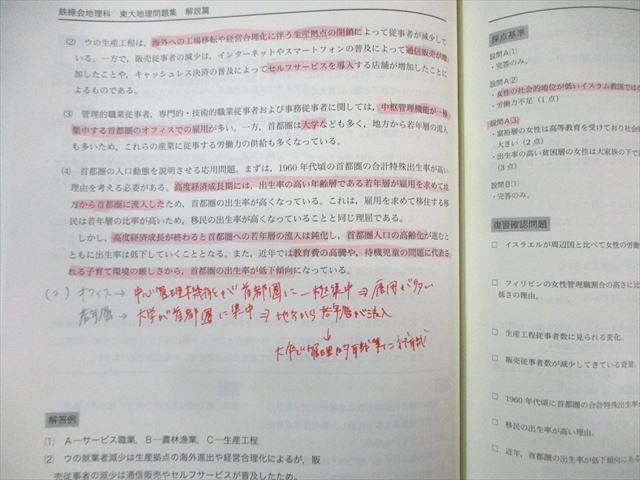 鉄緑会地理科　東大地理問題集　解説篇
(2)　ウの生産工程は，海外への工場移転や経営合理化に伴う生産拠点の閉鎖によって従事者が減少して
いる。一方で，販売従事者の減少は，インターネットやスマートフォンの普及によって通信販売が増
加したことや，キャッシュレス決済の普及によってセルフサービスを導入する店舗が増加したことに
よるものである。
(3)　管理的職業従事者，専門的・技術的職業従事者および事務従事者に関しては，中枢管理機能が一極
集中する首都圏のオフィスでの雇用が多い。一方，首都圏は大学なども多く，地方から若年層の流入
も多いため，これらの産業に従事する労働力の供給も多くなっている。
(4)　首都圏の人口動態を説明させる応用問題。まずは，1960 年代頃の首都圏の合計特殊出生率が高い
理由を考える必要がある。高度経済成長期には，出生率の高い年齢層である若年層が雇用を求めて地
方から首都圏に流入したため，首都圏の出生率が高くなっている。これは，雇用を求めて移住する移
民は若年層の比率が高いため，移民の出生率が高くなっていることと同じ理屈である。
しかし，高度経済成長が終わると首都圏への若年層の流入は鈍化し，首都圏人口の高齢化が進むと
ともに出生率は低下していくこととなる。また，近年では教育費の高騰や，待機児童の問題に代表さ
れる子育て環境の厳しさから，首都圏の出生率が低下傾向になっている。
オフィス→ 中心管理機能が首都圏に一極集中⇒雇用が多い
若年層→ 大学が首都圏に集中⇒地方から若年層が流入
↓
解答例
(1)　A―サービス職業，B―農林漁業，C―生産工程
(2)　ウの就業者減少は生産拠点の海外進出や経営合理化によるが，販
売従事者の減少は通信販売やセルフサービスが普及したため。
採点基準
設問A(1)
・完答のみ。
設問A(2)
・女性の社会的地位が低いイスラム教国では
・労働力不足（1 点）
設問A(3)
・富裕層の女性は高等教育を受けており社会
大きい（2 点）
・出生率の高い貧困層の女性は大家族の下で
（3 点）
設問B(1)
・完答のみ。
復習確認問題
□　イスラエルが周辺国と比べて女性の労働
□　フィリピンの女性管理職割合の高さに比
低さの理由。
□　生産工程従事者数に見られる変化。
□　販売従事者数が減少してきている背景。
□　1960 年代頃に首都圏の合計特殊出生率が
□　移民の出生率が高い理由。
□　近年，首都圏の出生率が低下傾向にある